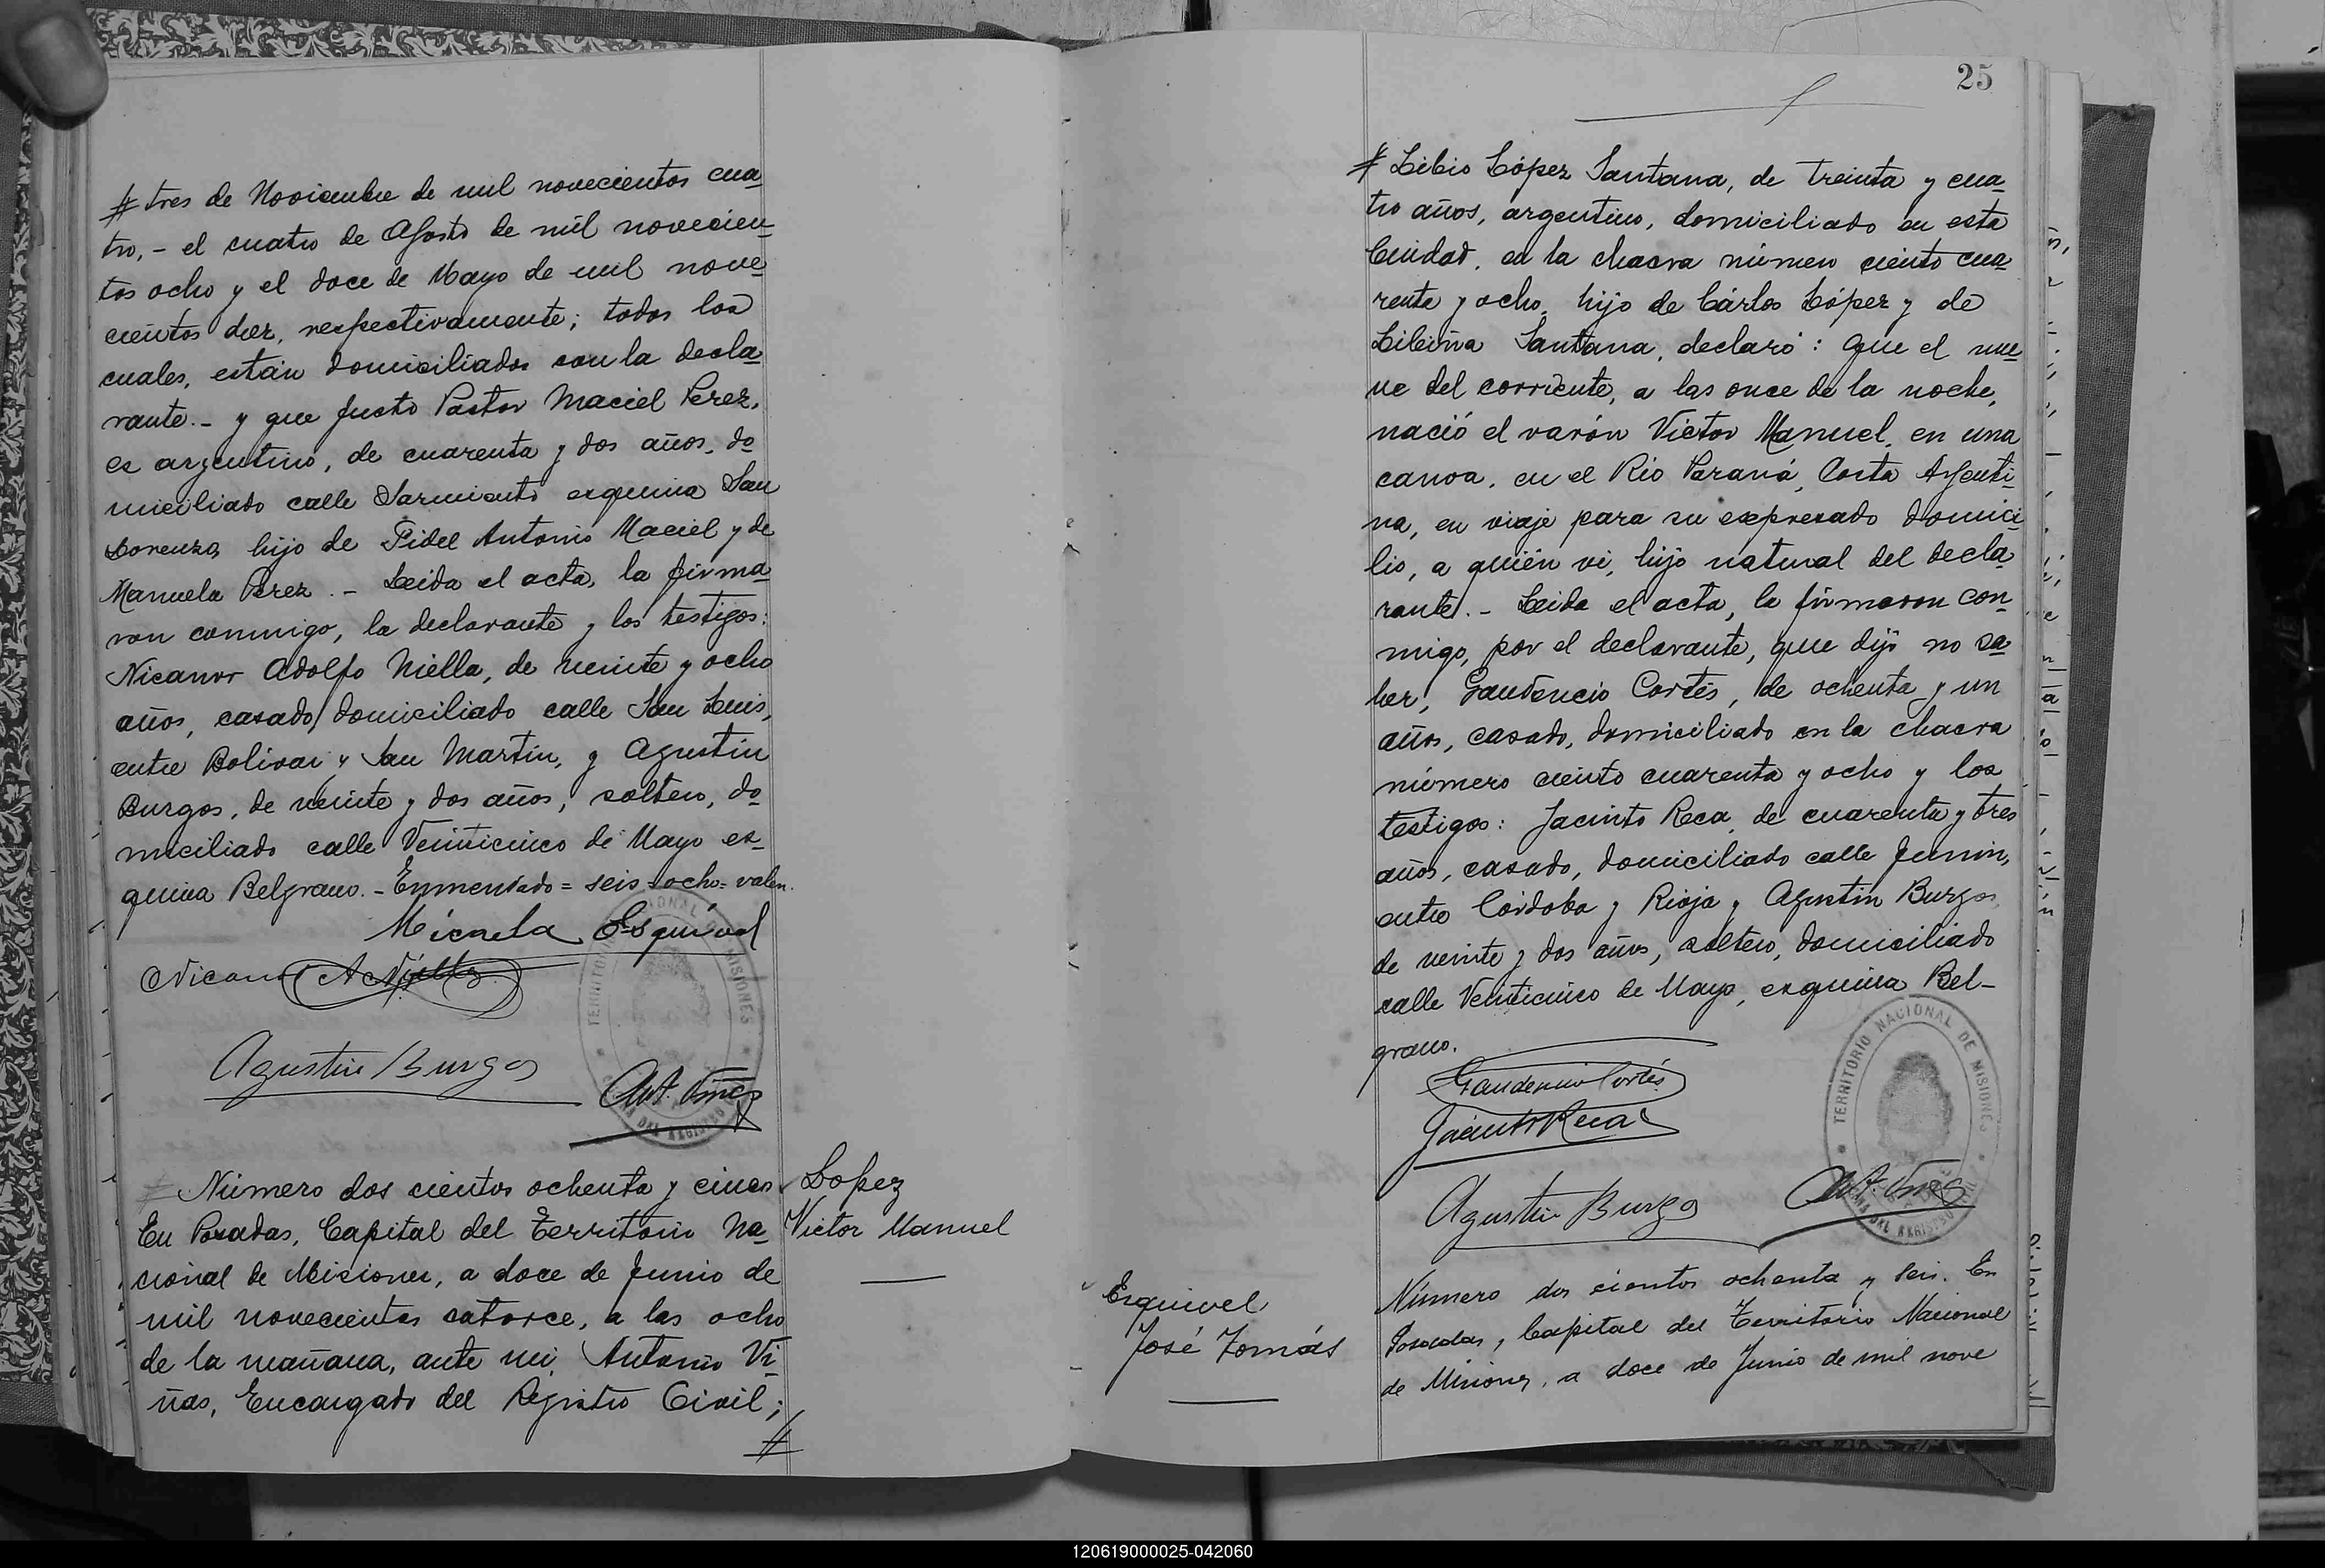 # tres de Noviembre de mil novecientos cua
tro, - el cuatro de Agosto de mil novecien
tos ocho y el doce de Mayo de mil nove
cientos diez, respectivamente; todos los
cuales, están domiciliados con la decla
rante.- y que Justo Pastor Maciel Perez,
es argentino, de cuarenta y dos años, do
miciliado calle Sarmiento esquina San
Lorenzo, hijo de Fidel Antonio Maciel y de
Manuela Perez.- Leida el acta, la firma
ron conmigo, la declarante y los testigos:
Nicanor Adolfo Niella, de veinte y ocho
años, casado, domiciliado calle San Luis,
entre Bolivar y San Martin, y Agustin
Burgos, de veinte y dos años, soltero, do
miciliado calle Veinticinco de Mayo es-
quina Belgrano.- Enmendado = seis = ocho = valen.
Micaela Esquivel
Nicanor A Niella
Agustin Burgos
Ant. Viñas
Número dos cientos ochenta y cinco
En Posadas, Capital del Territorio Na
cional de Misiones, a doce de Junio de
mil novecientos catorce, a las ocho
de la mañana, ante mi, Antonio Vi
ñas, Encargado del Registro Civil;
#
Lopez
Victor Manuel
25
# Libio López Santana, de treinta y cua
tro años, argentino, domiciliado en esta
Ciudad, en la chacra número ciento cua
renta y ocho, hijo de Cárlos López y de
Libiña Santana, declaró: Que el nue
ve del corriente, a las once de la noche,
nació el varón Victor Manuel, en una
canoa, en el Rio Paraná, Costa Argenti
na, en viaje para su expresado domici
lio, a quién vi, hijo natural del decla
rante.- Leida el acta, la firmaron con
migo, por el declarante, que dijo no sa
ber, Gaudencio Cortés, de ochenta y un
años, casado, domiciliado en la chacra
número ciento cuarenta y ocho y los
testigos: Jacinto Reca, de cuarenta y tres
años, casado, domiciliado calle Junin,
entre Córdoba y Rioja y Agustin Burgos,
de veinte y dos años, soltero, domiciliado
calle Veinticinco de Mayo, esquina Bel-
grano.
Gaudencio Cortés
Jacinto Reca
Agustin Burgos
Ant. Viñas
TERRITORIO NACIONAL DE MISIONES
DEL REGISTRO
Esquivel
José Tomás
Número dos cientos ochenta y seis. En
Posadas, Capital del Territorio Nacional
de Misiones, a doce de Junio de mil nove
120619000025-042060